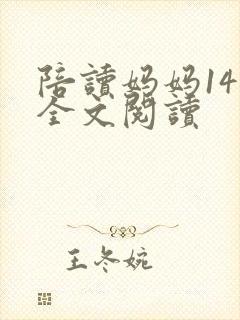 陪讀妈妈14
全文閱讀
王冬婉